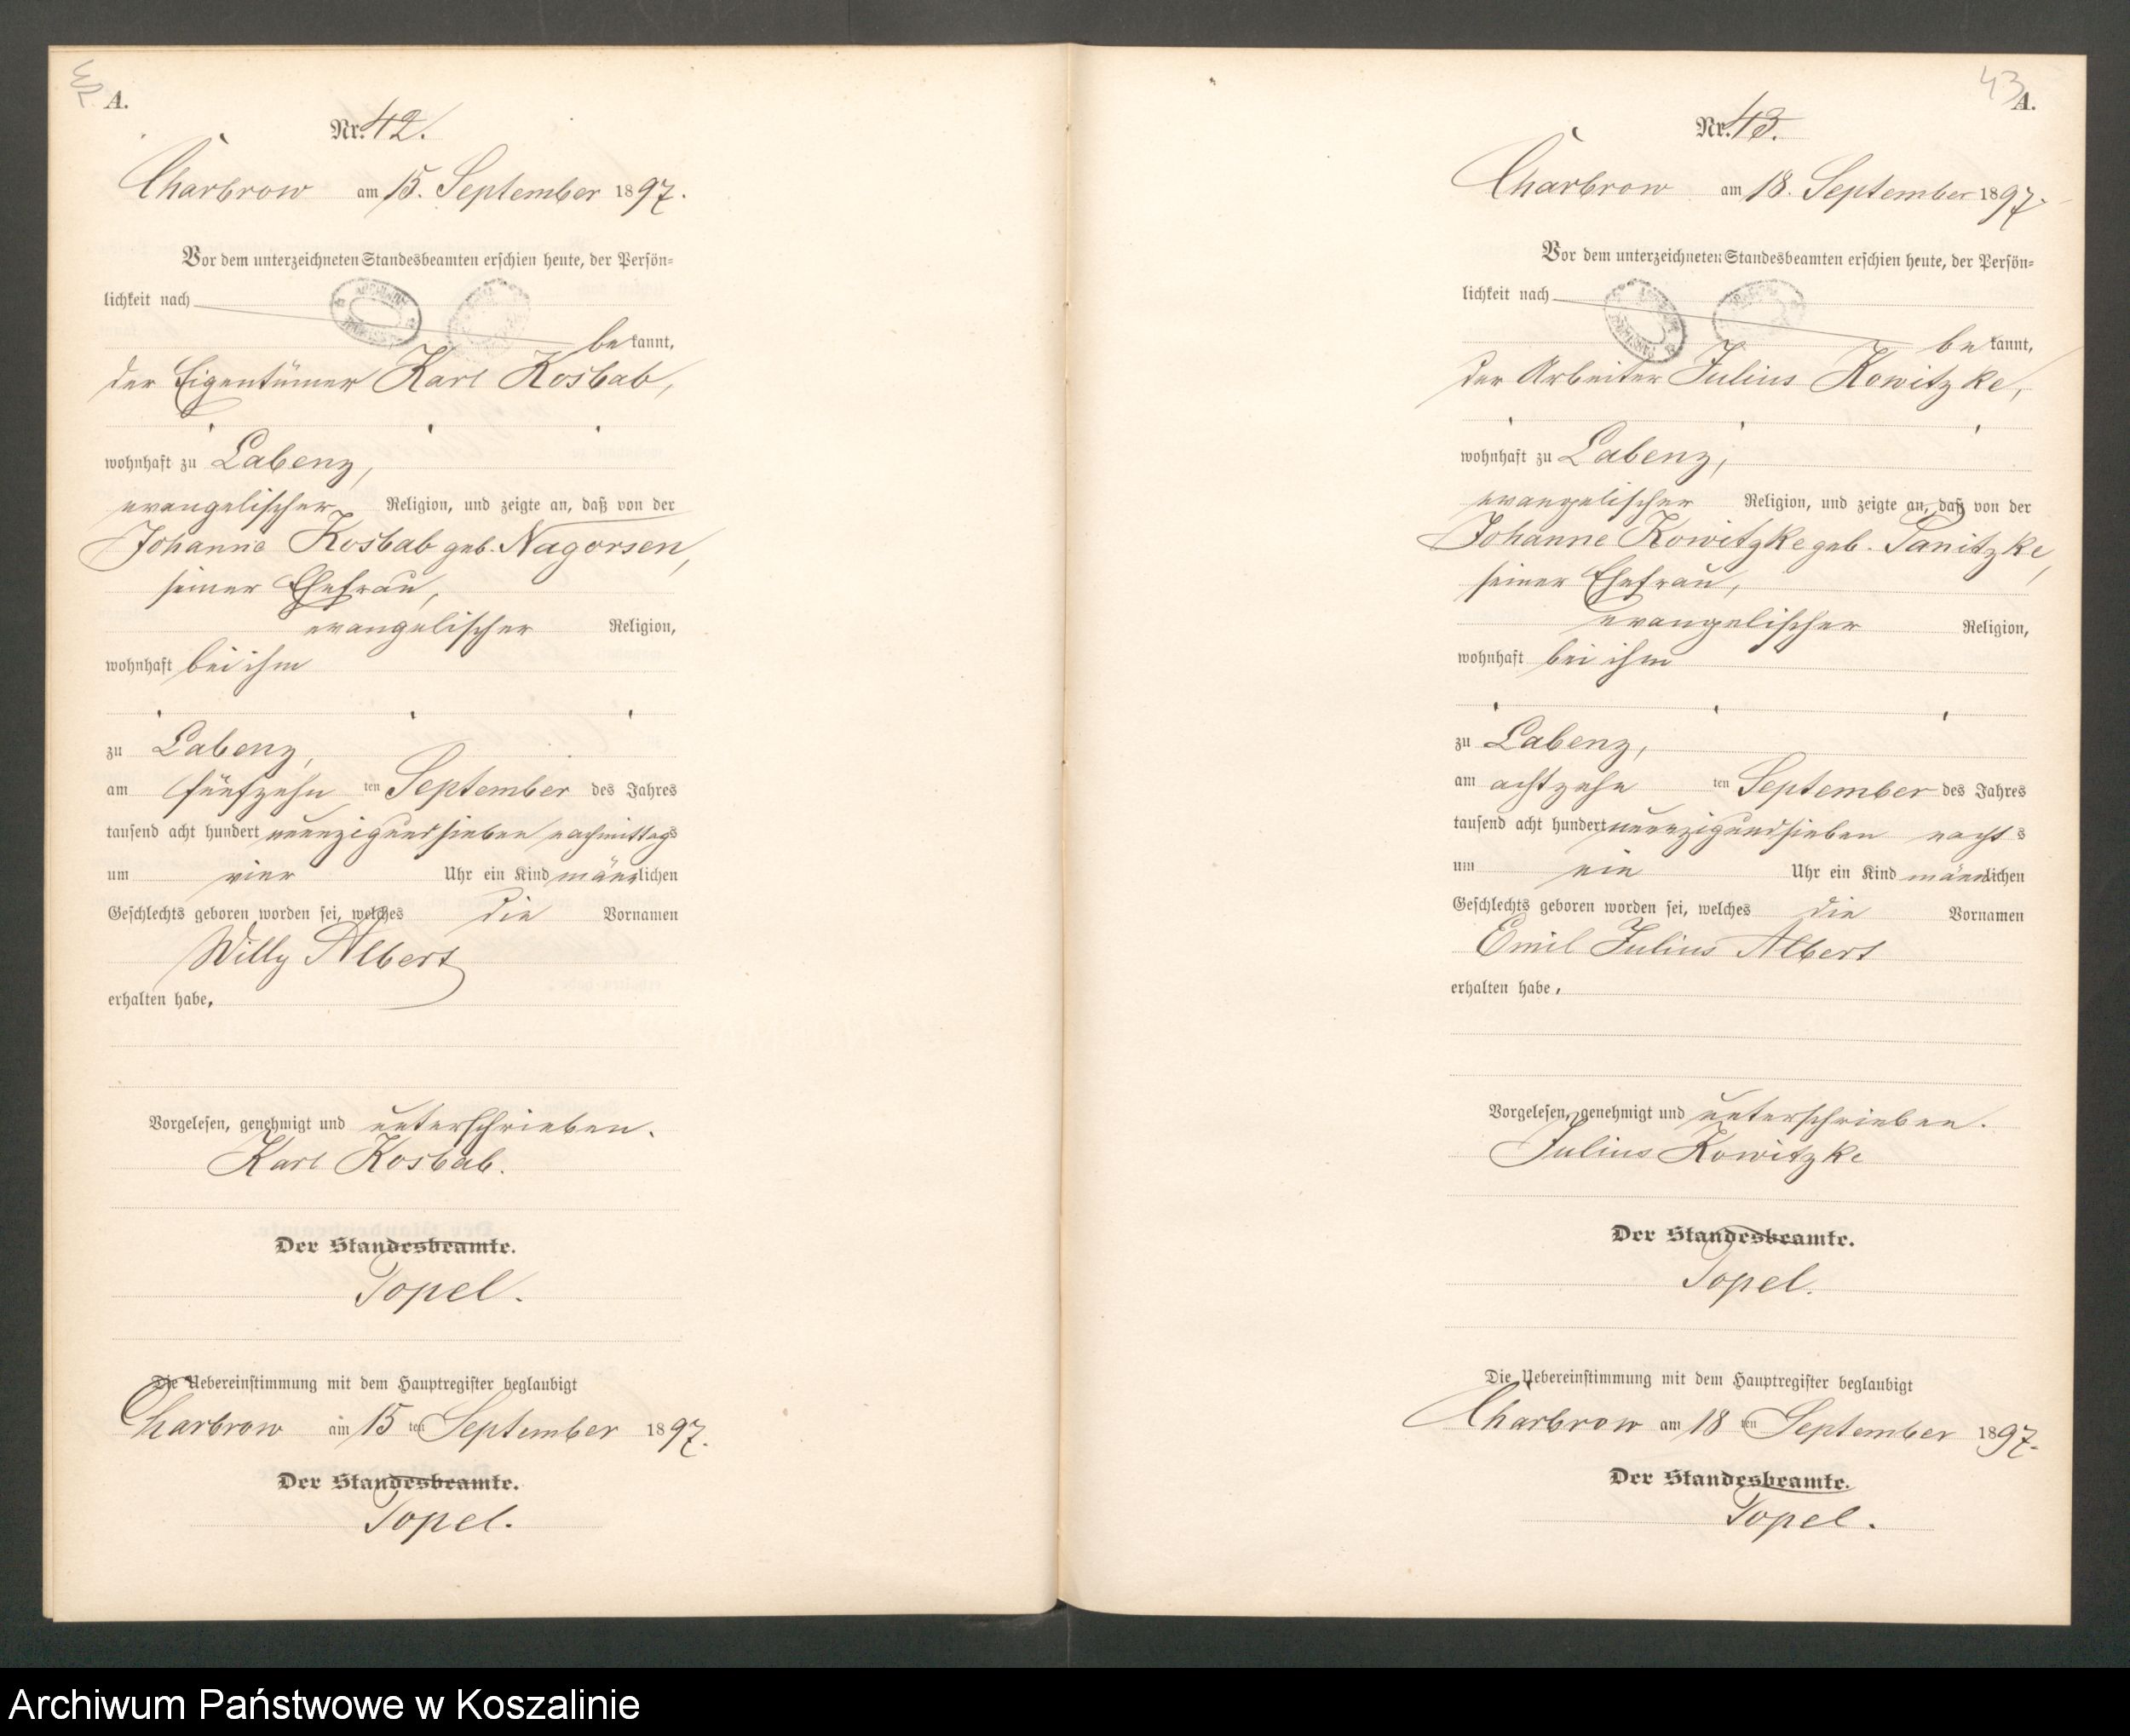 A.
Nr. 42.
Charbrow am 15. September 1897.
Vor dem unterzeichneten Standesbeamten erschien heute, der Persön-
lichkeit nach
be kannt,
der Eigentümer Karl Kosbab,
wohnhaft zu Labenz,
evangelischer Religion, und zeigte an, daß von der
Johanne Kosbab geb. Nagorsen,
seiner Ehefrau,
evangelischer Religion,
wohnhaft bei ihm
zu Labenz,
am fünfzehn ten September des Jahres
tausend acht hundert neunzig und sieben nachmittags
um vier Uhr ein Kind männlichen
Geschlechts geboren worden sei, welches die Vornamen
Willy Albert
erhalten habe,
Vorgelesen, genehmigt und unterschrieben.
Karl Kosbab.
Der Standesbeamte.
Topel.
Die Uebereinstimmung mit dem Hauptregister beglaubigt
Charbrow am 15 ten September 1897.
Der Standesbeamte.
Topel.
43
A.
Nr. 43.
Charbrow am 18. September 1897.
Vor dem unterzeichneten Standesbeamten erschien heute, der Persön-
lichkeit nach
be kannt,
der Arbeiter Julius Kowitzke,
wohnhaft zu Labenz,
evangelischer Religion, und zeigte an, daß von der
Johanne Kowitzke geb. Panitzke,
seiner Ehefrau,
evangelischer Religion,
wohnhaft bei ihm
zu Labenz,
am achtzehn ten September des Jahres
tausend acht hundert neunzig und sieben nachts
um ein Uhr ein Kind männlichen
Geschlechts geboren worden sei, welches die Vornamen
Emil Julius Albert
erhalten habe,
Vorgelesen, genehmigt und unterschrieben.
Julius Kowitzke
Der Standesbeamte.
Topel.
Die Uebereinstimmung mit dem Hauptregister beglaubigt
Charbrow am 18 ten September 1897.
Der Standesbeamte.
Topel.
Archiwum Państwowe w Koszalinie